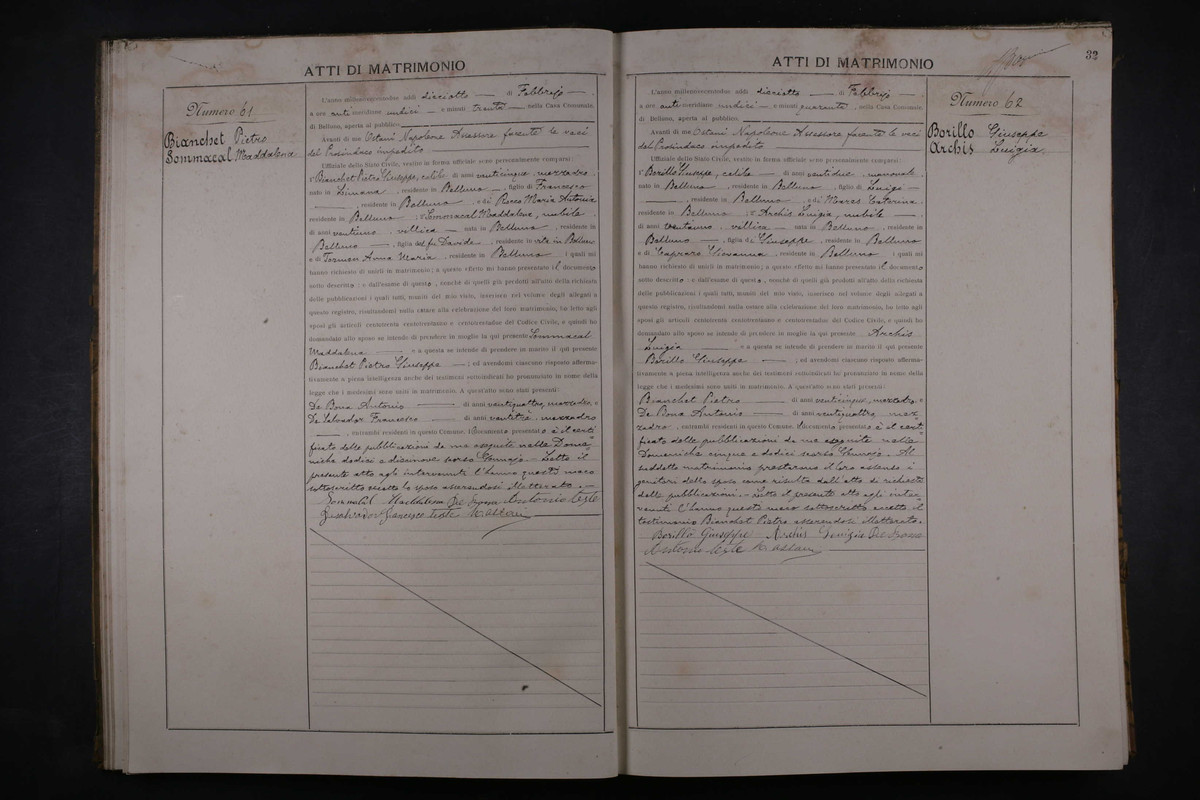 ATTI DI MATRIMONIO
Numero 61
Bianchet Pietro
Sommacal Maddalena
L'anno millenovecentodue addì dieciotto di Febbrajo
a ore antimeridiane undici e minuti trenta nella Casa Comunale
di Belluno, aperta al pubblico
Avanti di me Ostani Napoleone Assessore facente le veci
del Prosindaco impedito
Uffiziale dello Stato Civile, vestito in forma officiale sono personalmente comparsi:
1° Bianchet Pietro Giuseppe, celibe di anni venticinque, mezzadro
nato in Limana, residente in Belluno, figlio di Francesco
, residente in Belluno e di Rocco Maria Antonia
residente in Belluno; 2° Sommacal Maddalena, nubile
di anni ventuno villica nata in Belluno, residente in
Belluno, figlia del fu Davide, residente in vita in Belluno
e di Tormen Anna Maria, residente in Belluno; i quali mi
hanno richiesto di unirli in matrimonio; a questo effetto mi hanno presentato il documento
sotto descritto; e dall'esame di questo, nonchè di quelli già prodotti all'atto della richiesta
delle pubblicazioni i quali tutti, muniti del mio visto, inserisco nel volume degli allegati a
questo registro, risultandomi nulla ostare alla celebrazione del loro matrimonio, ho letto agli
sposi gli articoli centotrenta centotrentuno e centotrentadue del Codice Civile, e quindi ho
domandato allo sposo se intende di prendere in moglie la qui presente Sommacal
Maddalena e a questa se intende di prendere in marito il qui presente
Bianchet Pietro Giuseppe; ed avendomi ciascuno risposto afferma-
tivamente a piena intelligenza anche dei testimoni sottoindicati ho pronunciato in nome della
legge che i medesimi sono uniti in matrimonio. A quest'atto sono stati presenti:
De Bona Antonio di anni ventiquattro, mezzadro, e
De Salvador Francesco di anni ventitrè, mezzadro
, entrambi residenti in questo Comune. Il documento presentato è il certi
ficato delle pubblicazioni da me eseguite nelle Dome
niche dodici e diecinove scorso Gennajo. Letto il
presente atto agli intervenuti l'hanno questi meco
sottoscritto eccetto lo sposo asserendosi illetterato.
Sommacal Maddalena De Bona Antonio teste
Desalvador Francesco teste
ATTI DI MATRIMONIO
32
Numero 62
Borillo Giuseppe
Archis Luigia
L'anno millenovecentodue addì dieciotto di Febbrajo
a ore antimeridiane undici e minuti quaranta, nella Casa Comunale
di Belluno, aperta al pubblico.
Avanti di me Ostani Napoleone Assessore facente le veci
del Prosindaco impedito
Uffiziale dello Stato Civile, vestito in forma officiale sono personalmente comparsi:
1° Borillo Giuseppe, celibe di anni ventidue, manovale
nato in Belluno, residente in Belluno, figlio di Luigi
, residente in Belluno e di Mares Caterina
residente in Belluno; 2° Archis Luigia, nubile
di anni ventuno, villica nata in Belluno, residente in
Belluno, figlia di Giuseppe, residente in Belluno
e di Caprara Giovanna, residente in Belluno; i quali mi
hanno richiesto di unirli in matrimonio; a questo effetto mi hanno presentato il documento
sotto descritto; e dall'esame di questo, nonchè di quelli già prodotti all'atto della richiesta
delle pubblicazioni i quali tutti, muniti del mio visto, inserisco nel volume degli allegati a
questo registro, risultandomi nulla ostare alla celebrazione del loro matrimonio, ho letto agli
sposi gli articoli centotrenta centotrentuno e centotrentadue del Codice Civile, e quindi ho
domandato allo sposo se intende di prendere in moglie la qui presente Archis
Luigia e a questa se intende di prendere in marito il qui presente
Borillo Giuseppe; ed avendomi ciascuno risposto afferma-
tivamente a piena intelligenza anche dei testimoni sottoindicati ho pronunciato in nome della
legge che i medesimi sono uniti in matrimonio. A quest'atto sono stati presenti:
Bianchet Pietro di anni venticinque, mezzadro, e
De Bona Antonio di anni ventiquattro, mez
zadro, entrambi residenti in questo Comune. Il documento presentato è il certi
ficato delle pubblicazioni da me eseguite nelle
Domeniche cinque e dodici scorso Gennajo. Al
suddetto matrimonio prestarono il loro assenso i
genitori dello sposo come risulta dall'atto di richiesta
delle pubblicazioni. Letto il presente atto agli inter
venuti l'hanno questi meco sottoscritto eccetto il
testimonio Bianchet Pietro asserendosi illetterato.
Borillo Giuseppe Archis Luigia De Bona
Antonio teste